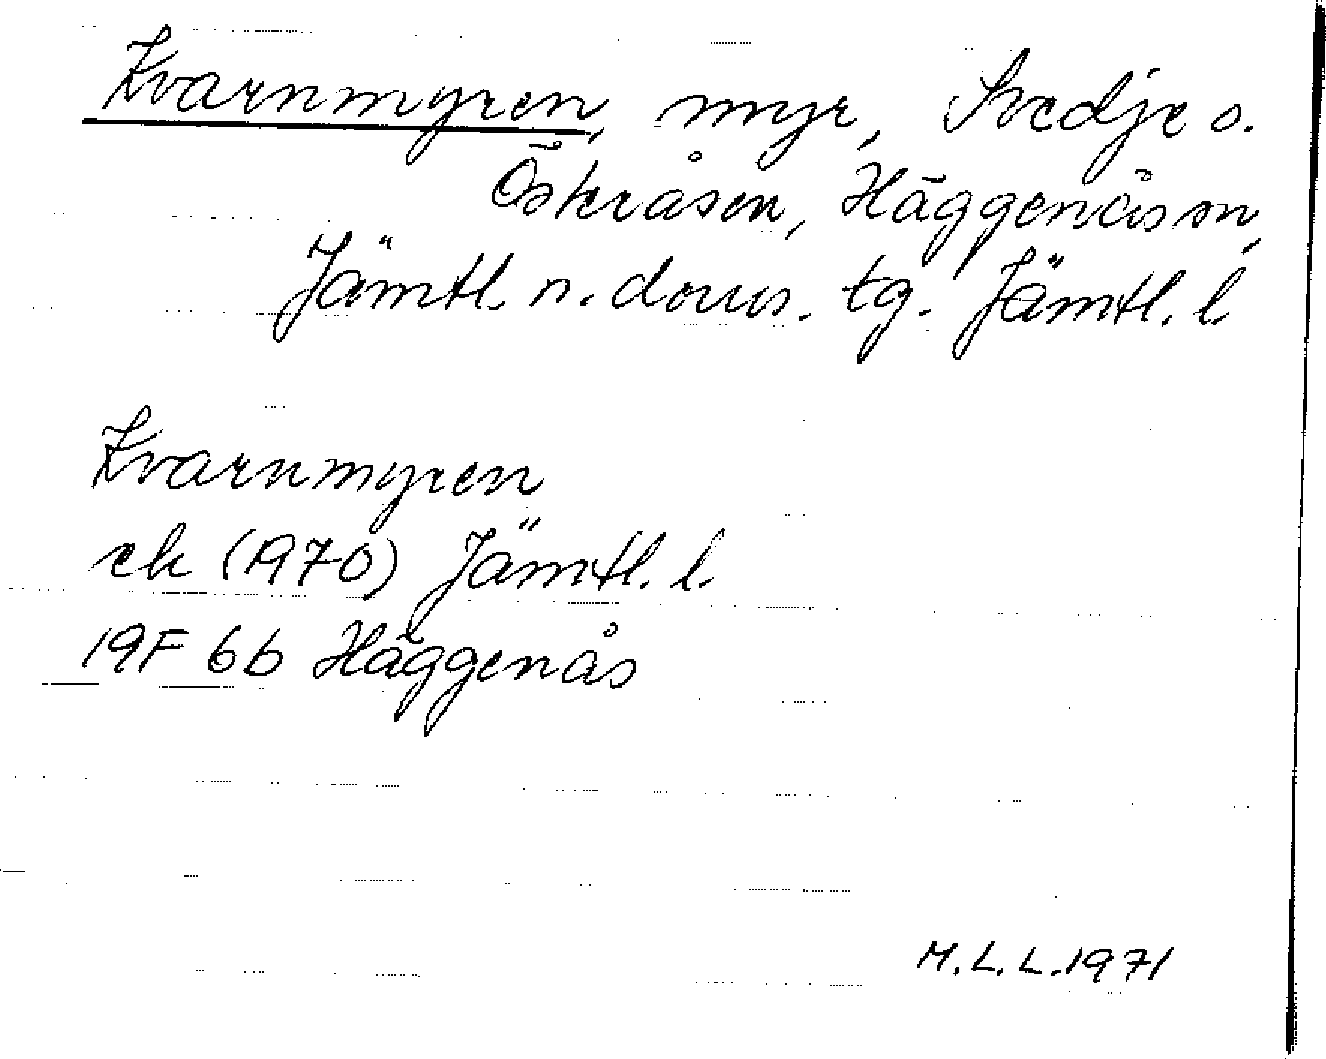 Kvarnmyren, myr, Svedje o.
Österåsen, Häggenås sn,
Jämtl. n. doms. tg. Jämtl. l.
Kvarnmyren
ek (1970) Jämtl. l.
19F 6b Häggenås
M.L.L.1971